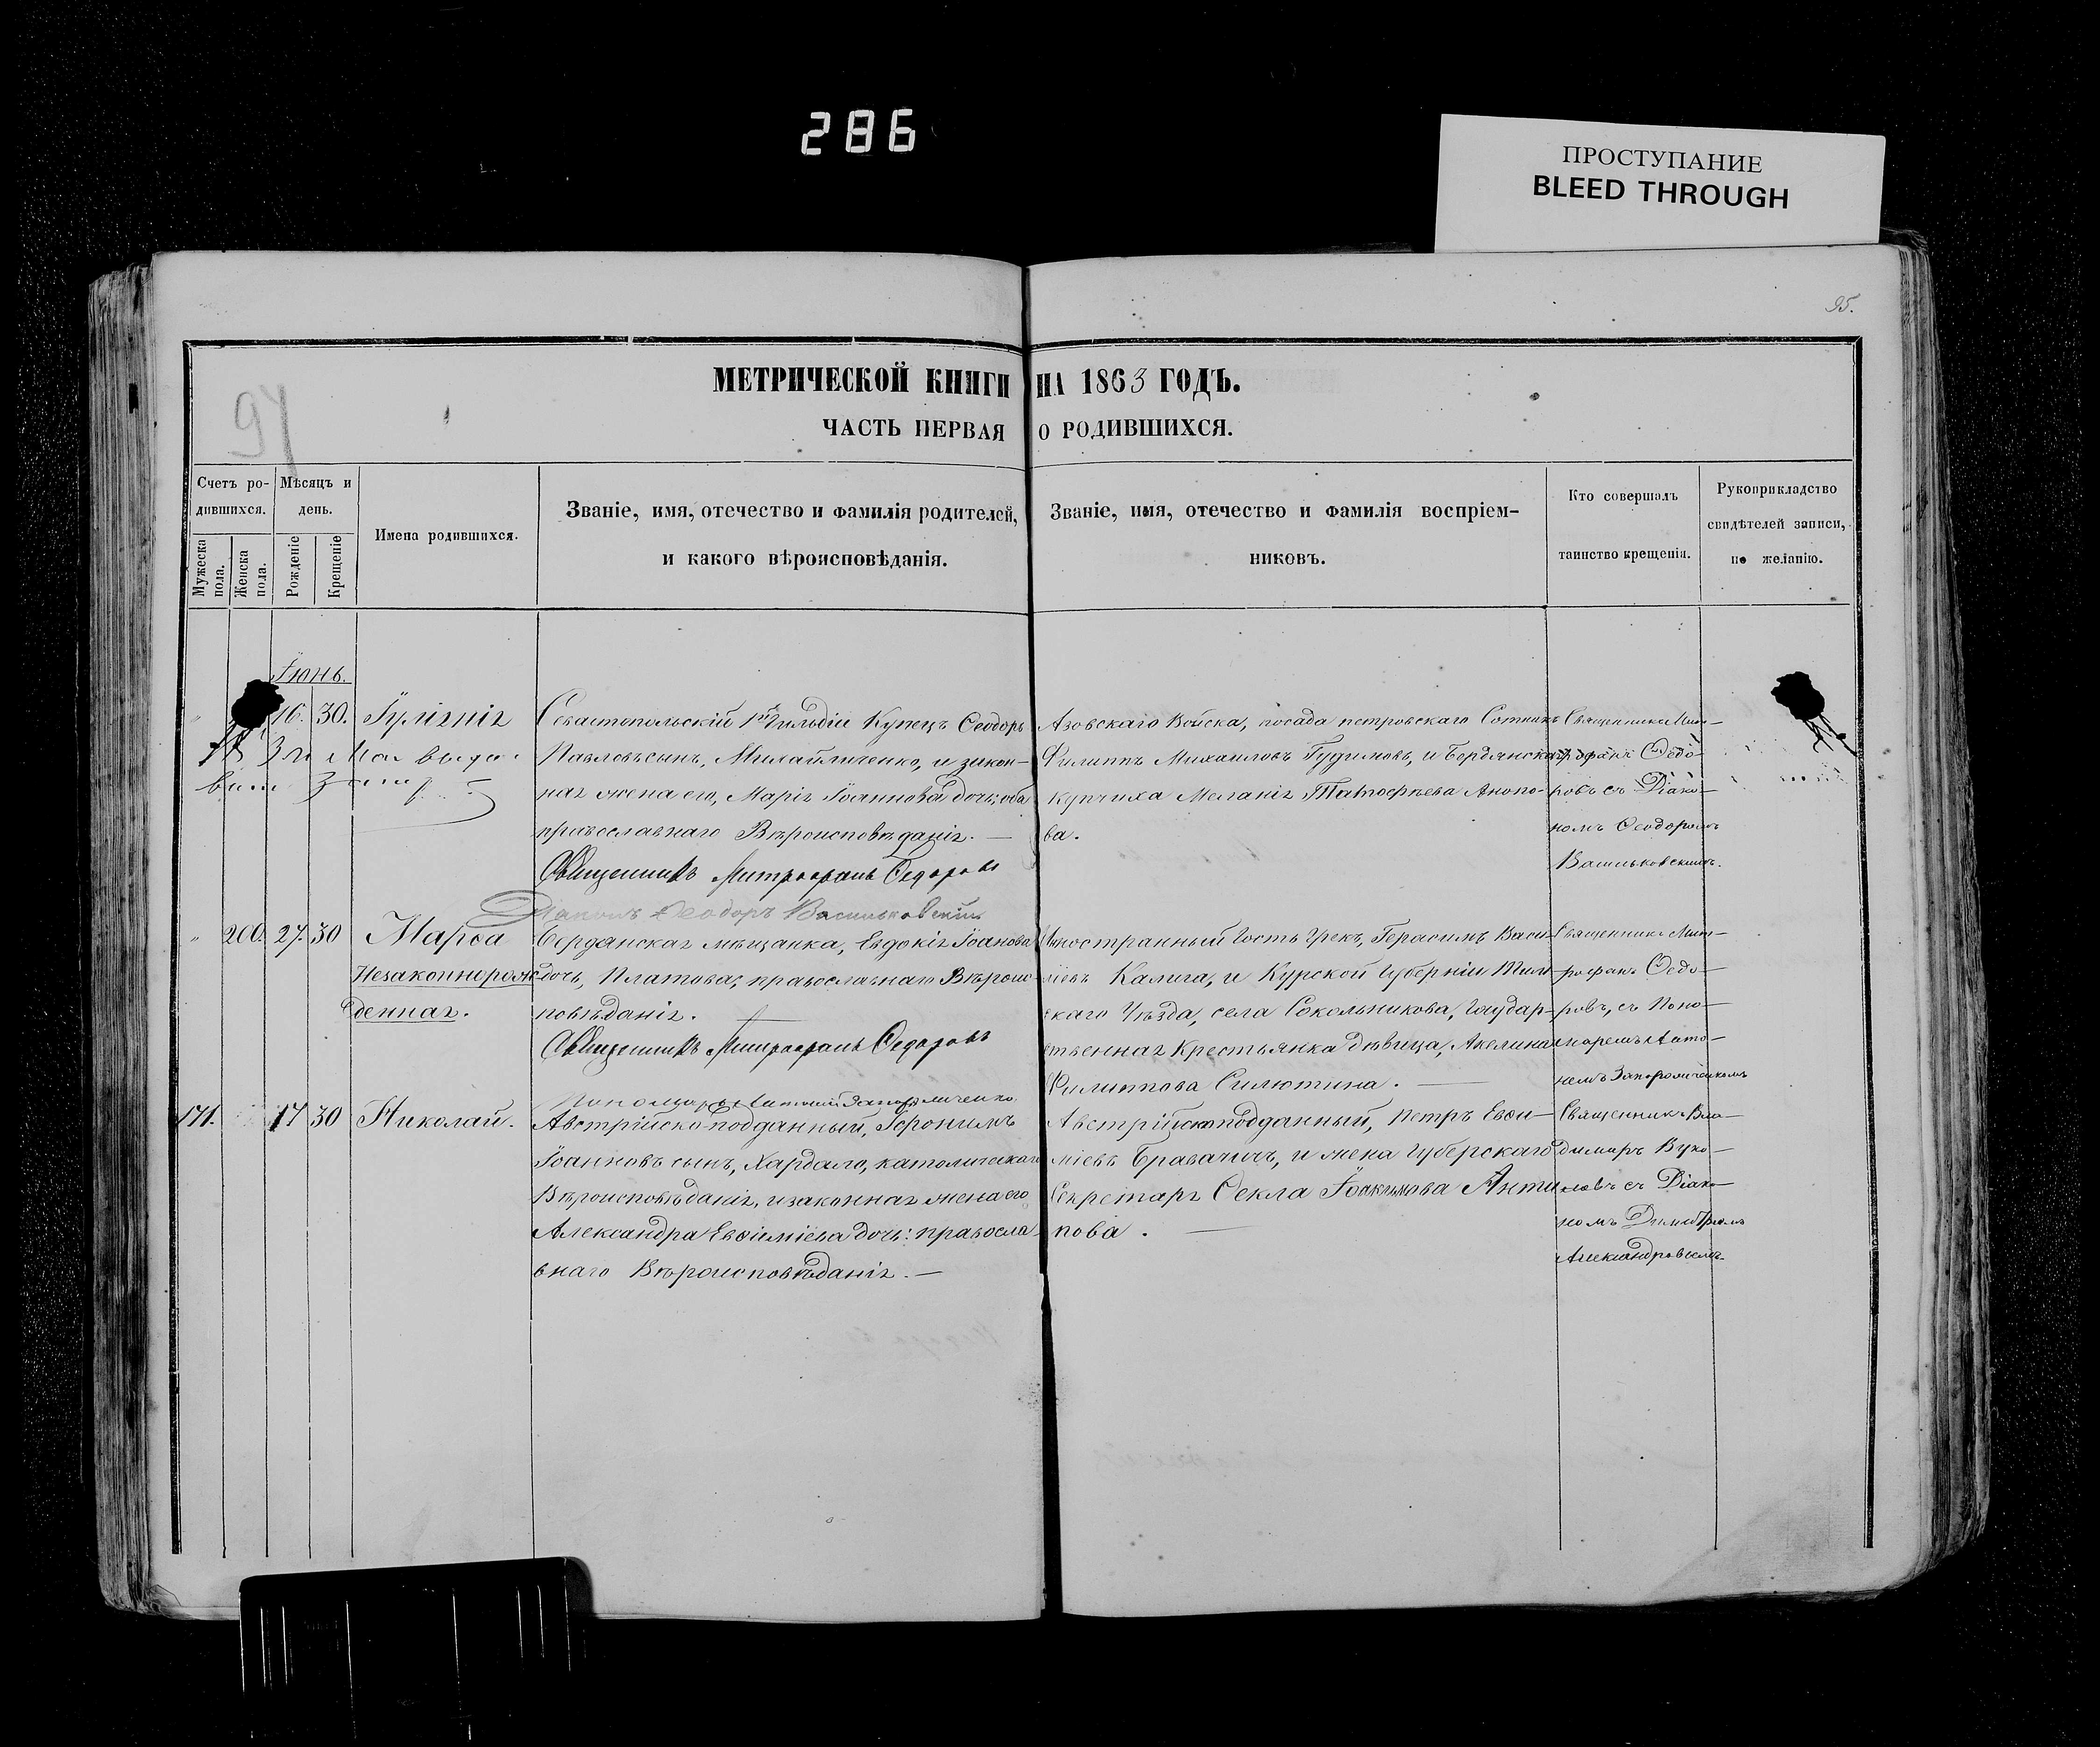 286
ПРОСТУПАНИЕ
BLEED THROUGH
95.
94
МЕТРИЧЕСКОЙ КНИГИ НА 1863 ГОДЪ.
ЧАСТЬ ПЕРВАЯ О РОДИВШИХСЯ.
Счетъ ро-
дившихся.
Мужеска пола.
Женска пола.
Мѣсяцъ и
день.
Рожденіе
Крещеніе
Имена родившихся.
Званіе, имя, отечество и фамилія родителей,
и какого вѣроисповѣданія.
Званіе, имя, отечество и фамилія воспріем-
никовъ.
Кто совершалъ
таинство крещенія.
Рукоприкладство
свидѣтелей записи,
по желанію.
Іюнь.
16. 30. Іуліанія
Севастопольскій 1й Гильдіи Купецъ Ѳеодоръ
Павловъ сынъ, Михайличенко, и закон-
ная жена его, Марія Іоаннова дочь; оба
православнаго Вѣроисповѣданія. —
Священникъ Митрофанъ Ѳедоровъ
Діаконъ Ѳеодоръ Васильковскій
Азовскаго Войска, посада петровскаго Сотникъ
Филиппъ Михаиловъ Гудимовъ, и Бердянская
купчиха Меланія
ва.
Священникъ Мит-
рофанъ Ѳедо-
ровъ съ Діако-
номъ Ѳеодоромъ
Васильковскимъ.
200. 27. 30 Марѳа
Незаконнорож-
денная.
Бердянская мѣщанка, Евдокія Іоанова
дочь, Платова; православнаго Вѣроис-
повѣданія. —
Священникъ Митрофанъ Ѳедоровъ
Пономарь
Иностранный Гость Грекъ, Герасимъ Васи-
ліевъ Калига, и Курской Губерніи Тим-
скаго Уѣзда, села Сокольникова, Государ-
ственная Крестьянка дѣвица, Акелина
Филиппова Силютина. —
Священникъ Мит-
рофанъ Ѳедо-
ровъ, съ Поно-
маремъ Анто-
немъ Запорожченкомъ
171. 17 30 Николай.
Австрійско-подданный, Іеронимъ
Іоанновъ сынъ, Хардало, католическаго
Вѣроисповѣданія, и законная жена его
Александра Евѳиміева дочь: правосла-
внаго Вѣроисповѣданія. —
Австрійскоподданный, Петръ Евѳи-
міевъ Бравачичъ, и жена Губерскаго
Секретаря Ѳекла Іоакимова Анти-
пова. —
Священникъ Вла-
димиръ Вуко-
ловъ съ Діако-
номъ Димитріемъ
Александровымъ